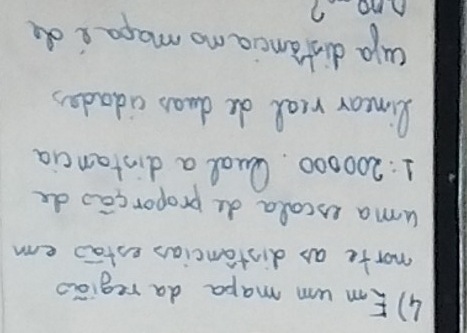 4) Em um mapa da região
norte as distâncias estão em
uma escala de proporção de
1:200000. Qual a distancia
linear real de duas cidades
cuja distância no mapa é de